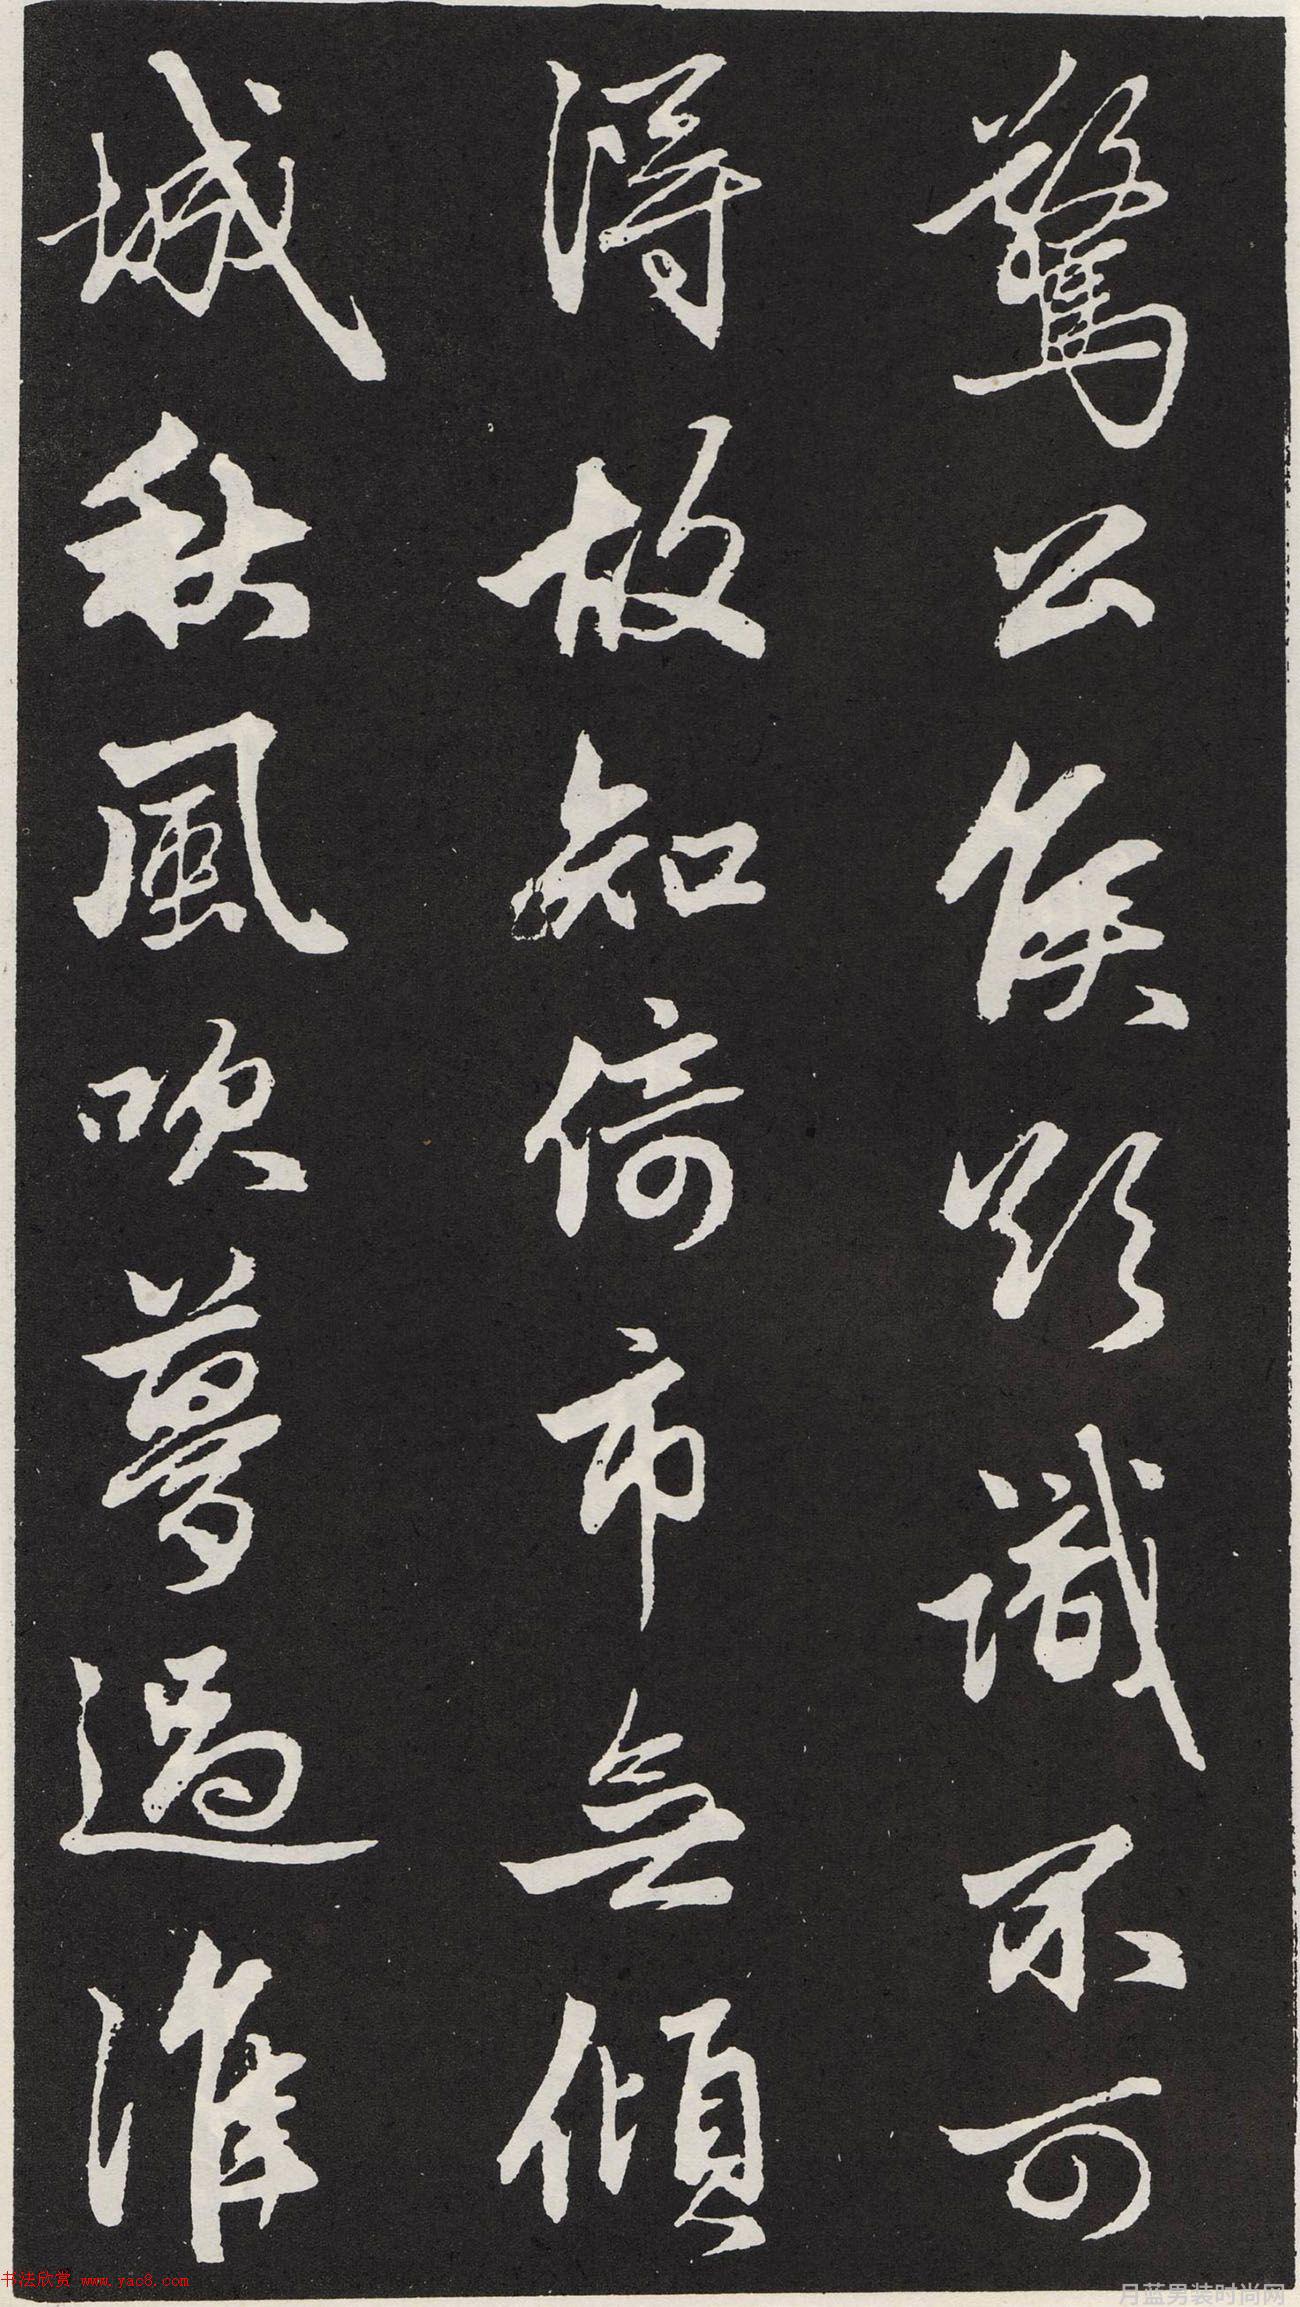 驚公侯欲識不可
得故知倚市無傾
城秋風吹夢過淮
书法欣赏 www.yac8.com
月蓝男装时尚网